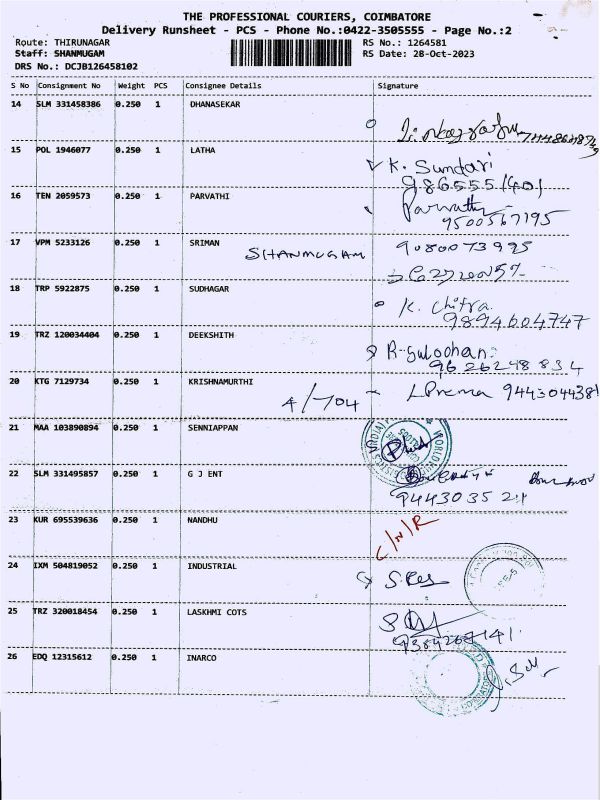 THE PROFESSIONAL COURIERS, COIMBATORE
Delivery Runsheet - PCS - Phone No.:0422-3505555 - Page No.:2
Route: THIRUNAGAR
RS No.: 1264581
Staff: SHANMUGAM
RS Date: 28-Oct-2023
DRS No.: DCJB126458102
S No Consignment No Weight PCS Consignee Details Signature
14 SLM 331458386 0.250 1 DHANASEKAR
15 POL 1946077 0.250 1 LATHA K. Sundari
16 TEN 2059573 0.250 1 PARVATHI Parvathy
9500567195
17 VPM 5233126 0.250 1 SRIMAN SHANMUGAM 9080073995
18 TRP 5922875 0.250 1 SUDHAGAR K. Chitra
9894604747
19 TRZ 120034404 0.250 1 DEEKSHITH R-Sulochan
9626248834
20 KTG 7129734 0.250 1 KRISHNAMURTHI 4/704 L Prema
21 MAA 103890894 0.250 1 SENNIAPPAN
22 SLM 331495857 0.250 1 G J ENT
23 KUR 695539636 0.250 1 NANDHU C/N/R
24 IXM 504819052 0.250 1 INDUSTRIAL
25 TRZ 320018454 0.250 1 LASKHMI COTS
26 EDQ 12315612 0.250 1 INARCO